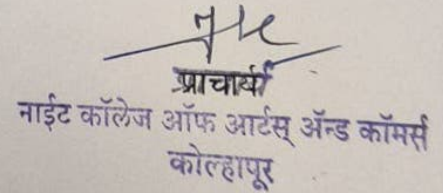 प्राचार्या
नाईट कॉलेज ऑफ आर्टस् ॲन्ड कॉमर्स
कोल्हापूर